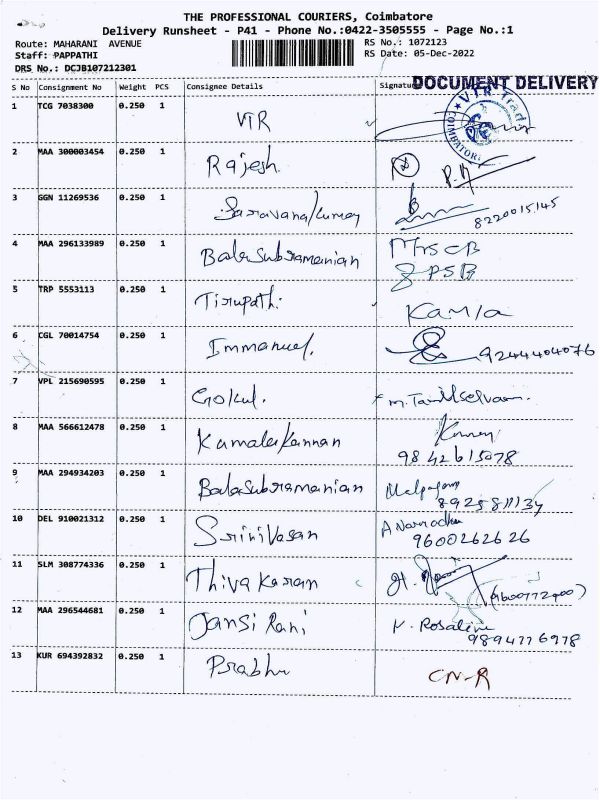 THE PROFESSIONAL COURIERS, Coimbatore
Delivery Runsheet - P41 - Phone No.:0422-3505555 - Page No.:1
Route: MAHARANI AVENUE
RS No.: 1072123
Staff: PAPPATHI
RS Date: 05-Dec-2022
DRS No.: DCJB107212301
S No Consignment No Weight PCS Consignee Details Signature
DOCUMENT DELIVERY
1 TCG 7038300 0.250 1 VTR
2 MAA 300003454 0.250 1 Rajesh
3 GGN 11269536 0.250 1 Saravanakumar 8220015145
4 MAA 296133989 0.250 1 BalaSubramanian
5 TRP 5553113 0.250 1 Tirupathi Kamla
6 CGL 70014754 0.250 1 Immanuel. 9244404076
7 VPL 215690595 0.250 1 Gokul. m. Tamilselvam.
8 MAA 566612478 0.250 1 Kamalakannan
9842615078
9 MAA 294934203 0.250 1 BalaSubramanian
10 DEL 910021312 0.250 1 Srinivasan
9600262626
11 SLM 308774336 0.250 1 Thivakaran
12 MAA 296544681 0.250 1 Jansi Rani
9894776978
13 KUR 694392832 0.250 1 Prabhu CN-R